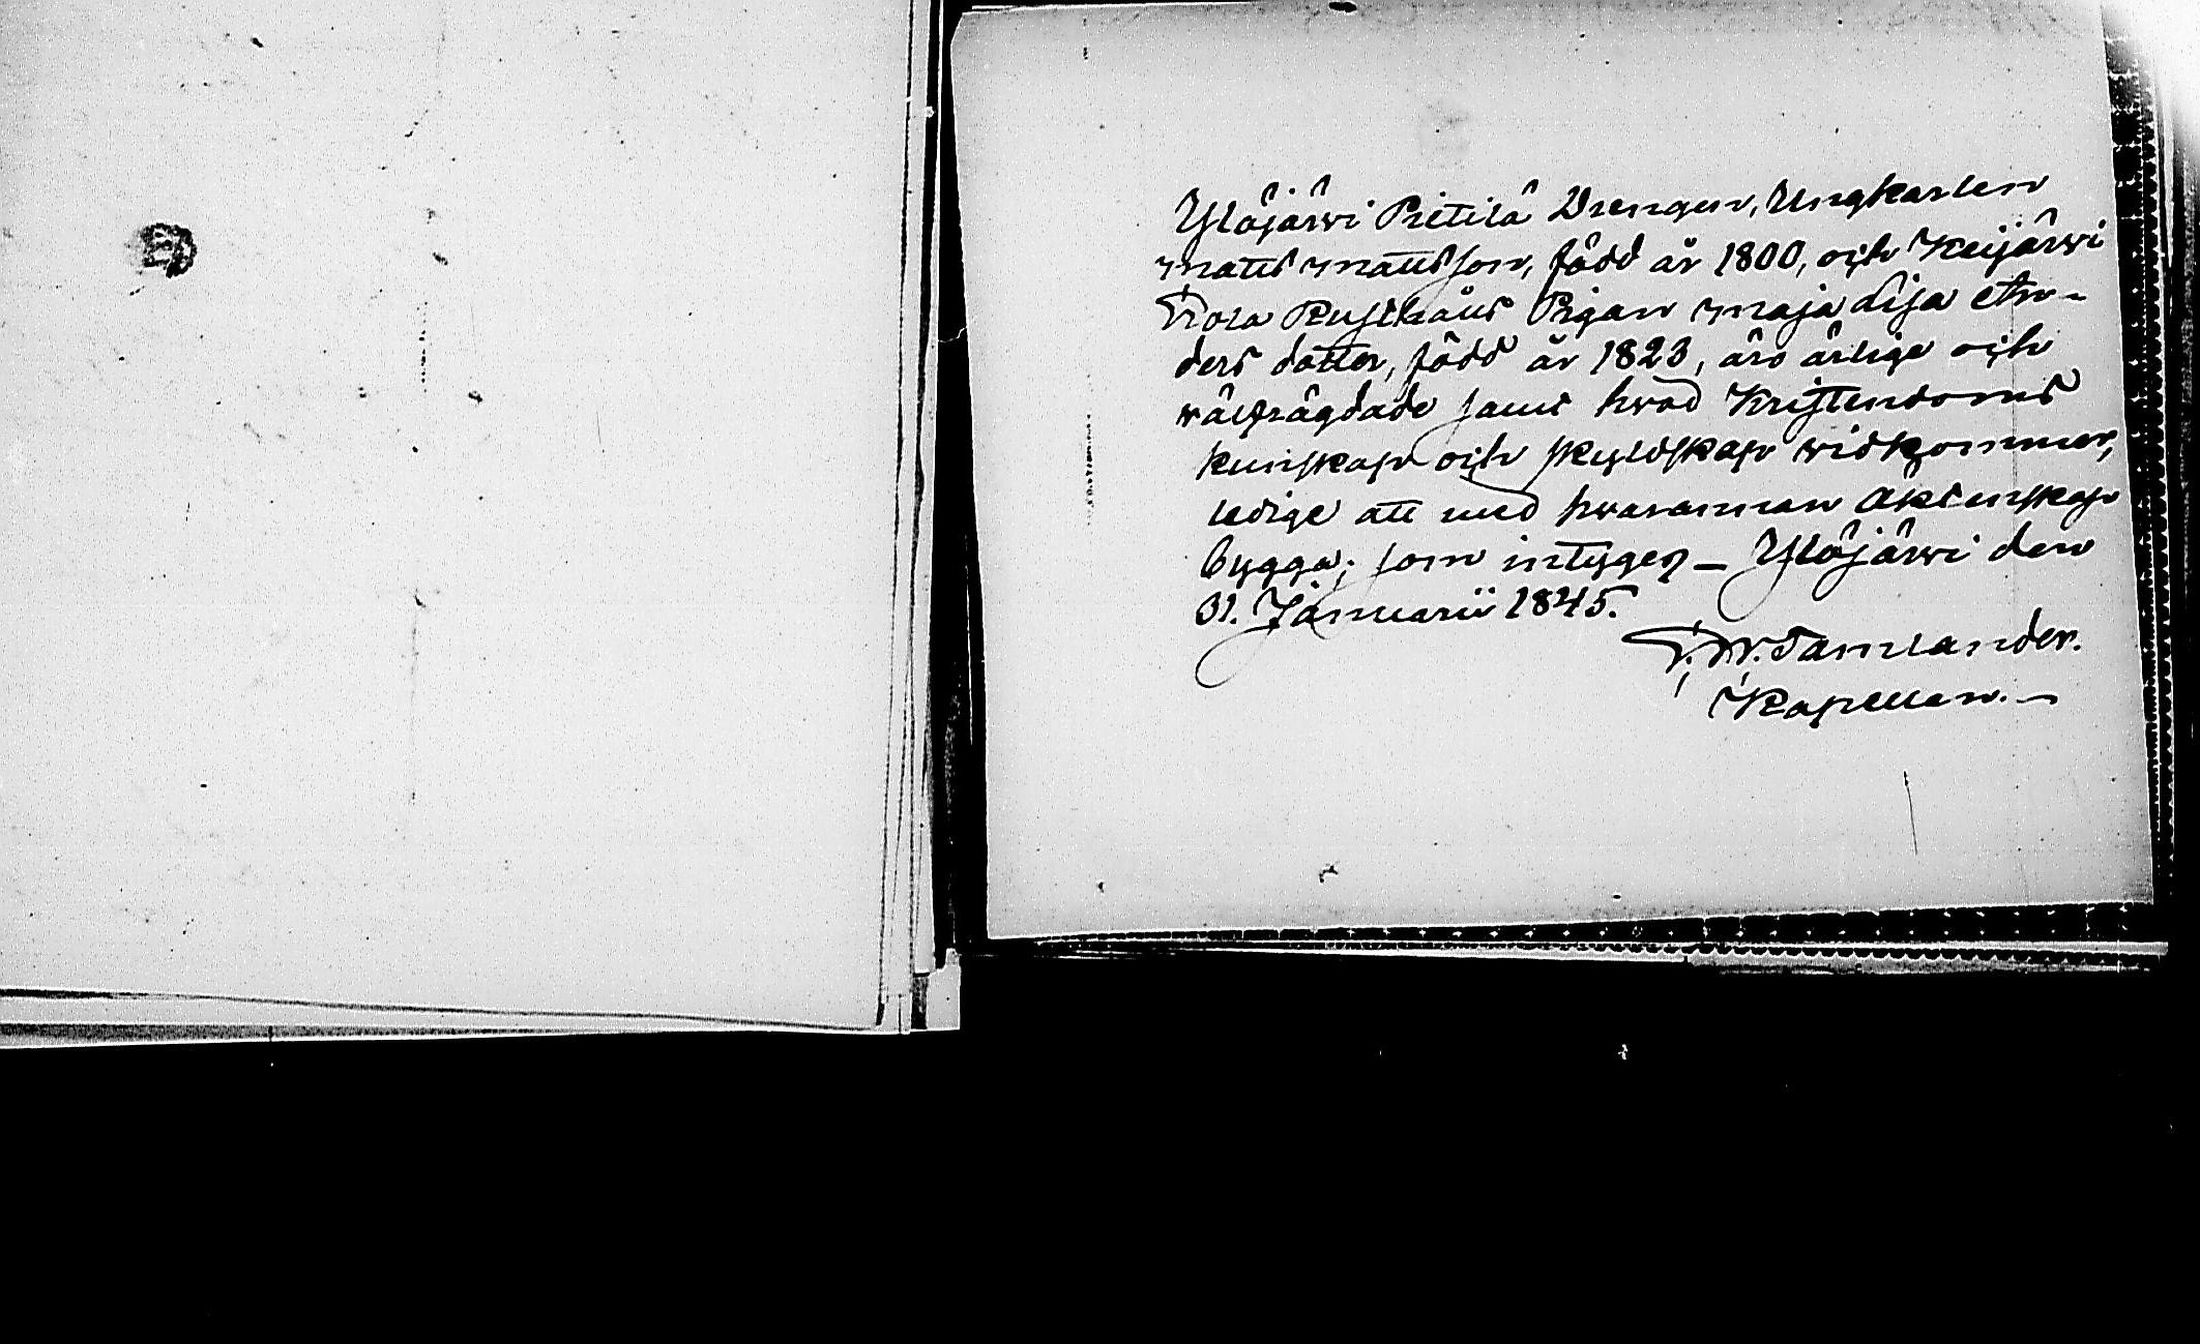 Ylöjärwi Pietilä Drengen, Ungkarlen
Matts Mattsson, född år 1800, och Keijärwi
Frola Rusthålls Pigan Maja Lisa An-
ders dotter, född år 1823, äro ärlige och
wälfrägdade samt hwad Kristendoms
kunskap och skyldskap widkommer,
ledige att med hwarannan Äktenskap
bygga; som intygas – Ylöjärwi den
31. Januarii 1845.
F. W. Tamlander.
Kapellan. –